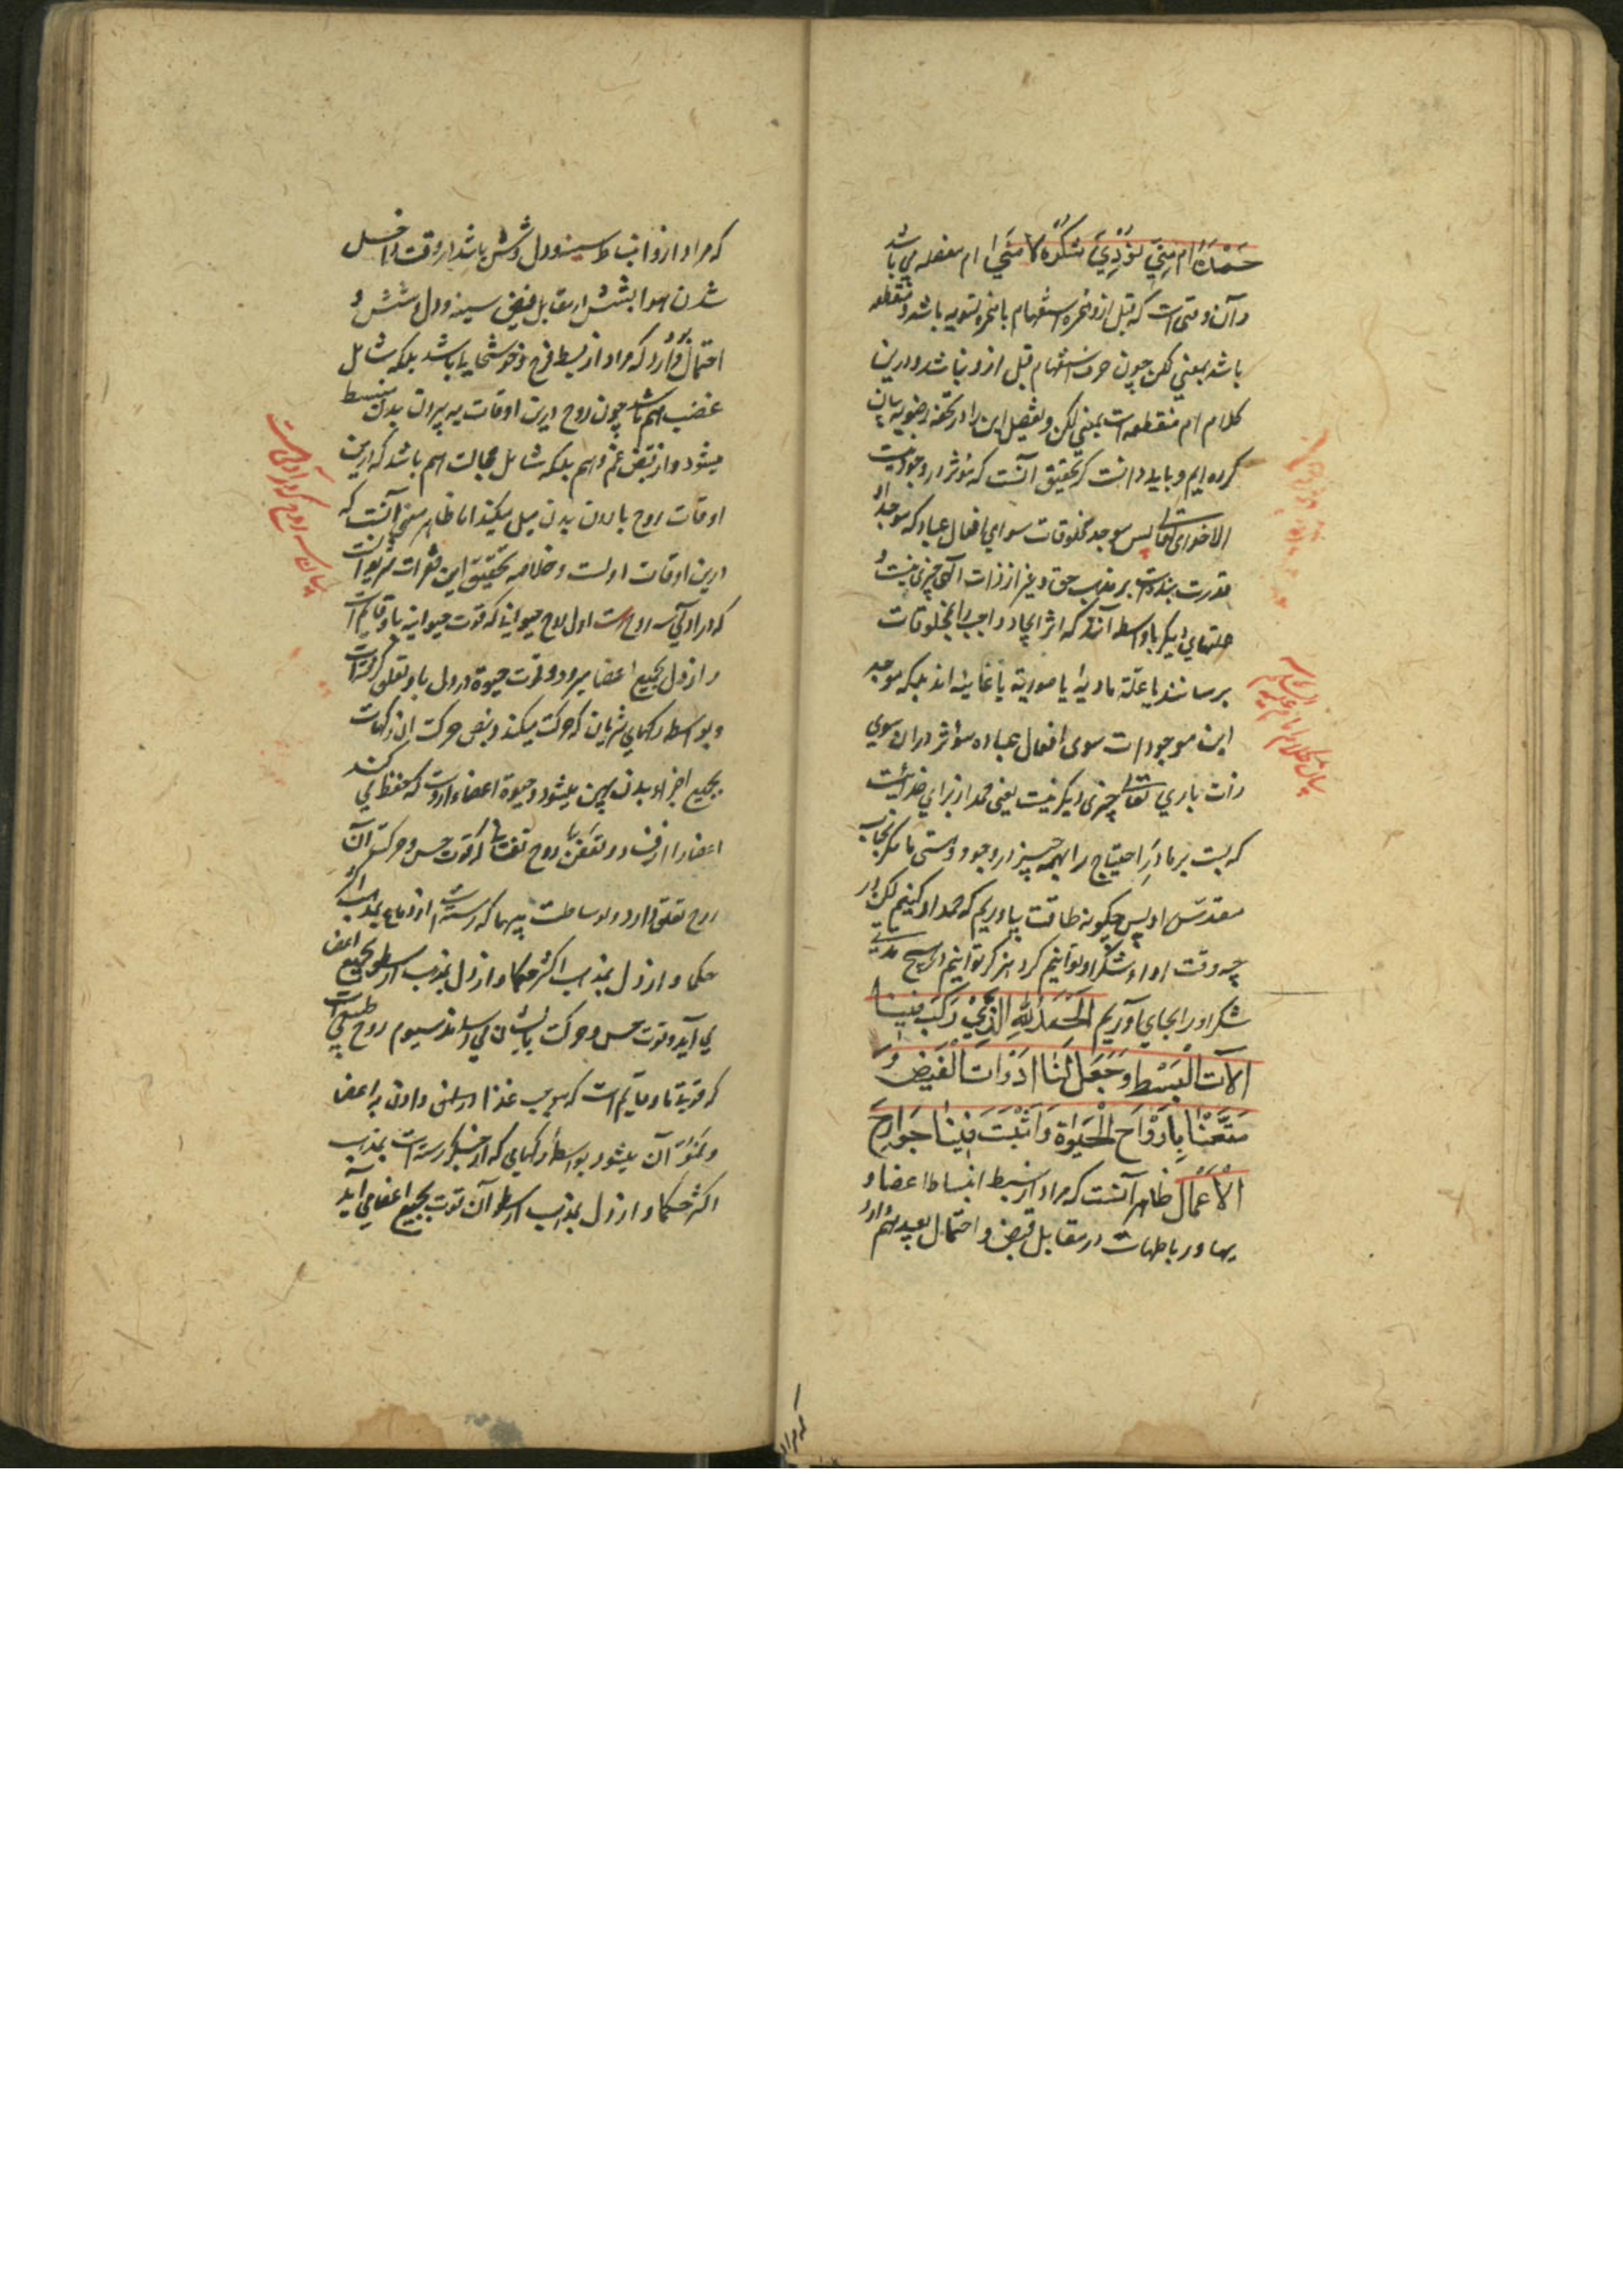 حَمْدَهُ اَم مَتي نُؤدِّيْ شُكْرَهُ لا مَتي ام متصله مي باشد
و آن وقتي است كه قبل ازو همزه استفهام يا همزه تسويه باشد و منقطعه
باشد بمعني لكن چون حرف استفهام قبل ازو نباشد و درين
كلام ام منقطعه است بمعني لكن و تفصيل اين را در تحفه رضويه بيان
كرده ايم و بايد دانست كه تحقيق آنست كه مؤثر در وجود نيست
الا خداي تعالي پس موجد مخلوقات سواي افعال عباد كه موجد او
قدرت بنده است بر مذهب حق و غير از ذات الهي چيزي نيست و
علتهاي ديگر يا واسطه اند كه اثر ايجاد واجب را بمخلوقات
برسانند يا علة ماديه يا صوريه يا غائيه اند بلكه موجد
اين موجودات سوى افعال عباد و مؤثر در ان سوي
ذات باري تعالي چيزى ديگر نيست يعني حمد از براي خدائيست
كه بست بر ما در احتياج را بهمه چيز در وجود و هستي ما مگر بجانب
مقدس او پس چگونه طاقت بياوريم كه حمد او كنيم لكن در
چه وقت اداء شكر او توانيم كرد هرگز نتوانيم و هيچ مدتي
شكر او را بجاي آوريم الحَمْدُ لِلّهِ الَّذِيْ رَكَّبَ فِيْنَا
آلاتِ الْبَسْطِ وَجَعَلَ لَنَا اَدَوَاتِ الْقَبْضِ وَ
مَتَّعَنَا بِاَرْوَاحِ الْحَيَوٰةِ وَاَثْبَتَ فِيْنَا جَوَارِحَ
الْاَعْمَالِ ظاهر آنست كه مراد از بسط انبساط اعضا و
پيها و رباطهاست در مقابل قبض و احتمال بعيد هم دارد
كه مراد
كه مراد ازو انبساط سينه و دل و شش باشد در وقت داخل
شدن هوا بشش در مقابل قبض سينه و دل و شش و
احتمال دارد كه مراد از بسط فرح و خوشحالي باشد بلكه شامل
غضب هم باشد چون روح درين اوقات به بيرون بدن منبسط
ميشود و از قبض غم و هم بلكه شامل خجالت هم باشد كه درين
اوقات روح باندرون بدن ميل ميكند اما ظاهر معني آنست كه
درين اوقات اولست و خلاصه تحقيق اين فقرات شريف آنست
كه در آدمي سه روح است اول روح حيواني كه قوت حيوانيه باو قايم است
و از دل بجميع اعضا ميرود و قوت حيوة در دل باو تعلق گرفته است
و بواسطه رگهاي شريان كه حركت ميكند و نبض حركت ان رگهاست
بجميع اجزاء بدن پهن ميشود و حيوة اعضاء ازوست كه حفظ مي كند
اعضا را از فساد و تعفن دويم روح نفساني كه قوت حس و حركت بآن
روح تعلق دارد و بوساطت پيها كه رسته است از دماغ بمذهب اكثر
حكما و از دل بمذهب ارسطو بجميع اعضا
مي آيد و قوت حس و حركت بايشان مي رساند سيوم روح طبيعي است
كه قوتها باو قايم است كه موجب غذا رسانيدن و دادن به اعضا
و نموّ آن ميشود بواسطه رگهاي كه از جگر رسته است بمذهب
اكثر حكما و از دل بمذهب ارسطو آن قوت بجميع اعضا مي آيد
بيان سه روح كه در آدمي است